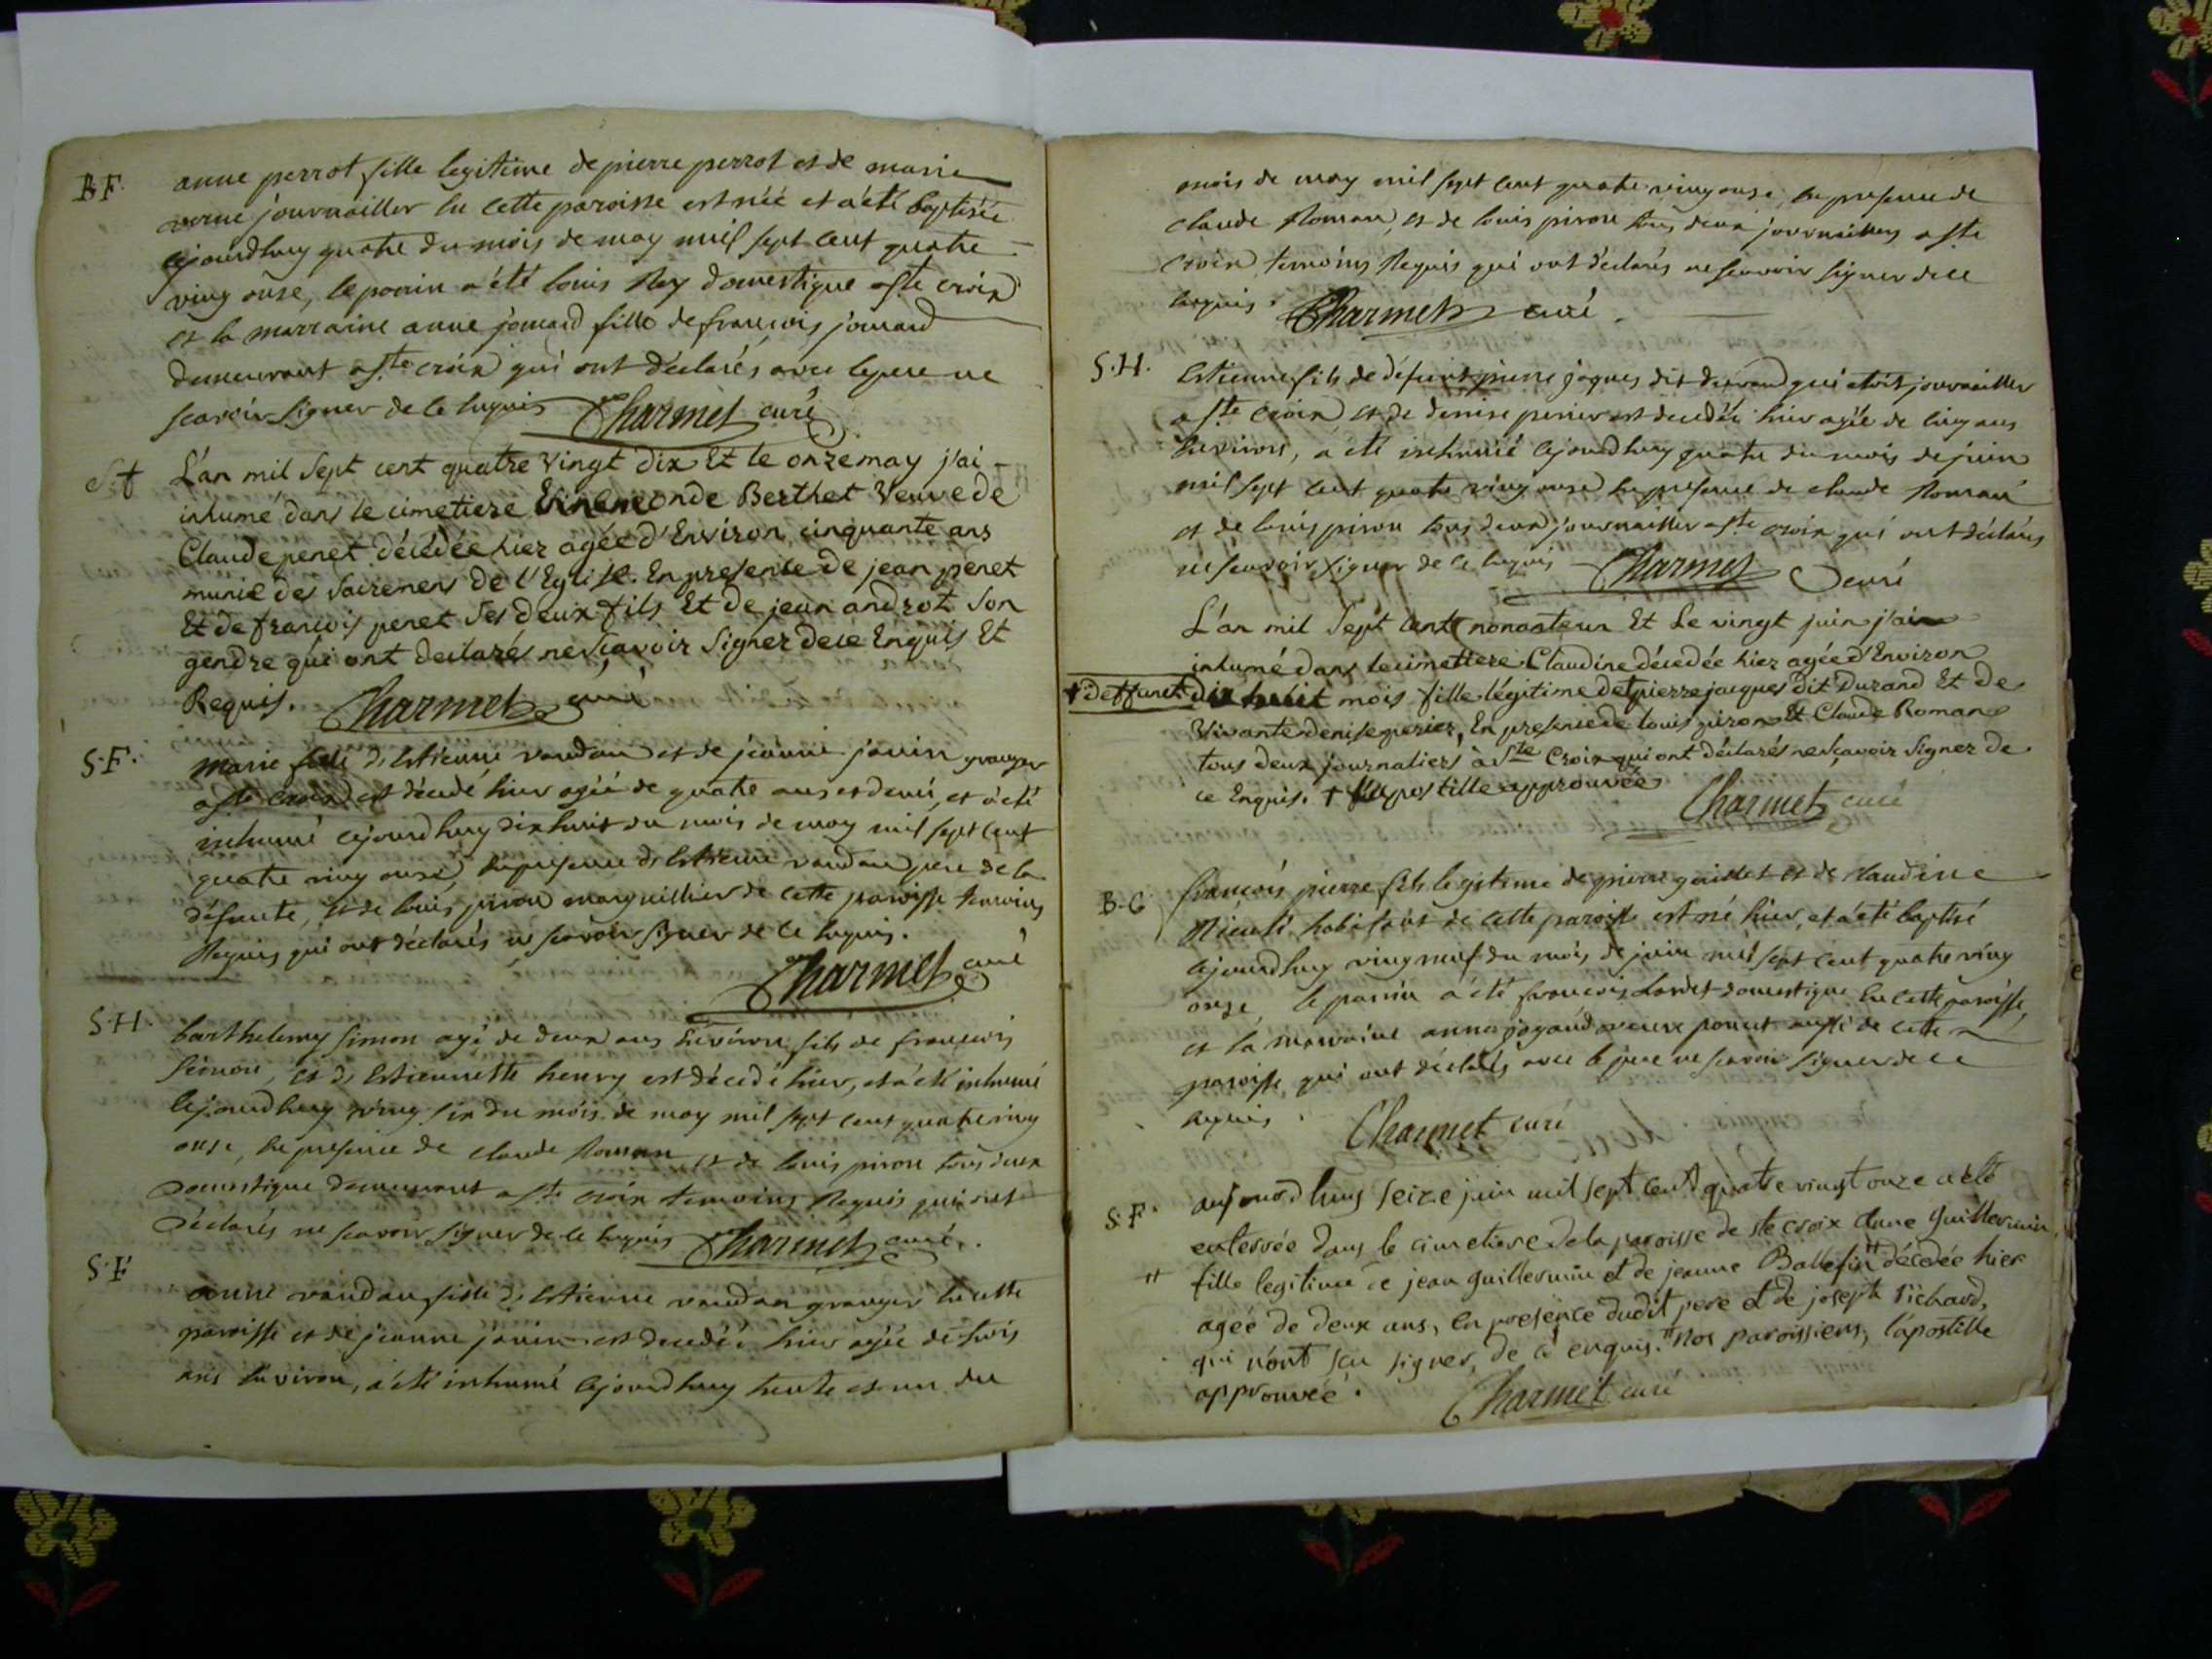 B.F. anne perrot fille legitime de pierre perrot et de marie
verne journailler en cette paroisse est néé et a été baptisée
cejourdhuy quatre du mois de may mil sept cent quatre
ving onse, le parrin a été louis Rey domestique a ste croix
et la marraine anne jomard fille de francois jomard
demeurant a ste croix qui ont déclarés avec le pere ne
scavoir signer de ce enquis Charmet curé
S.f L'an mil Sept cent quatre vingt dix Et le onze may j'ai
inhumé dans le cimetiere Enemonde Berthet Veuve de
Claude penet décédée hier agée d'Environ cinquante ans
munie des sacremens de l'Eglise. En presence de jean penet
Et de francois penet Ses deux fils Et de jean androt Son
gendre qui ont declarés ne sçavoir Signer de ce Enquis Et
Requis. Charmet curé
S.F. marie fille d'Estienne vandan et de jeanne janin granger
a ste croix est décedé hier agéé de quatre ans et demi, et a été
inhumé cejourdhuy dix huit du mois de may mil sept cent
quatre ving onse, en presence d'Estienne vandan pere de la
défunte, et de louis piron marguillier de cette paroisse temoins
Requis qui ont déclarés ne scavoir signer de ce enquis.
Charmet curé
S.H. barthelemy simon agé de deux ans Environ fils de francois
simon, et d'Estiennette henry est décedé hier, et a été inhumé
cejourdhuy ving six du mois de may mil sept cent quatre ving
onse, en presence de claude Roman et de louis piron tous deux
domestique demeurant a ste croix temoins Requis qui ont
déclarés ne scavoir signer de ce enquis Charmet curé.
S.F anne vandan fille d'Estienne vandan granger en cette
paroisse et de jeanne janin est decedéé hier agéé de trois
ans Environ, a été inhumé cejourdhuy trente et un du
mois de may mil sept cent quatre ving onse, en presence de
claude Roman, et de louis piron tous deux journaillers a ste
croix temoins Requis qui ont déclarés ne scavoir signer de ce
enquis. Charmet curé.
S.H. Estienne fils de défunt pierre jaques dit durand qui etoit journailler
a ste croix et de denise perier est decedéé hier agéé de cinq ans
Environs, a été inhumé cejourdhuy quatre du mois de juin
mil sept cent quatre ving onse en presence de claude Roman
et de louis piron tous deux journailler a ste croix qui ont déclarés
ne scavoir signer de ce enquis Charmet curé
L'an mil Sept cent nonanteun Et Le vingt juin j'ai
inhumé dans le cimettere Claudine décedée hier agée d'Environ
† deffunct dix huit mois fille légitime de† pierre jacques dit Durand Et de
Vivante denise perier, En presence de louis piron Et Claude Roman
tous deux journaliers à Ste Croix qui ont déclarés ne sçavoir Signer de
ce Enquis. † apostille approuvée
Charmet curé
B.G francois pierre fils legitime de pierre guillet et de claudine
habitant de cette paroisse est né hier, et a été baptisé
cejourdhuy ving neuf du mois de juin mil sept cent quatre ving
onse, le parrin a été francois domestique en cette paroisse,
et la marraine anne veuve aussi de cette
paroisse, qui ont déclarés avec le pere ne scavoir signer de ce
enquis. Charmet curé
S.F. aujourdhuy seize juin mil sept cent quatre vingt onze a été
enterrée dans le cimetiere de la paroisse de ste croix anne Guillermin,
" fille legitime de jean guillermin et de jeanne Ballefin" décedée hier
agée de deux ans, en presence dudit pere et de joseph richard,
qui n'ont sçu signer, de ce enquis. "nos paroissiens, l'apostille
approuvée.
Charmet curé